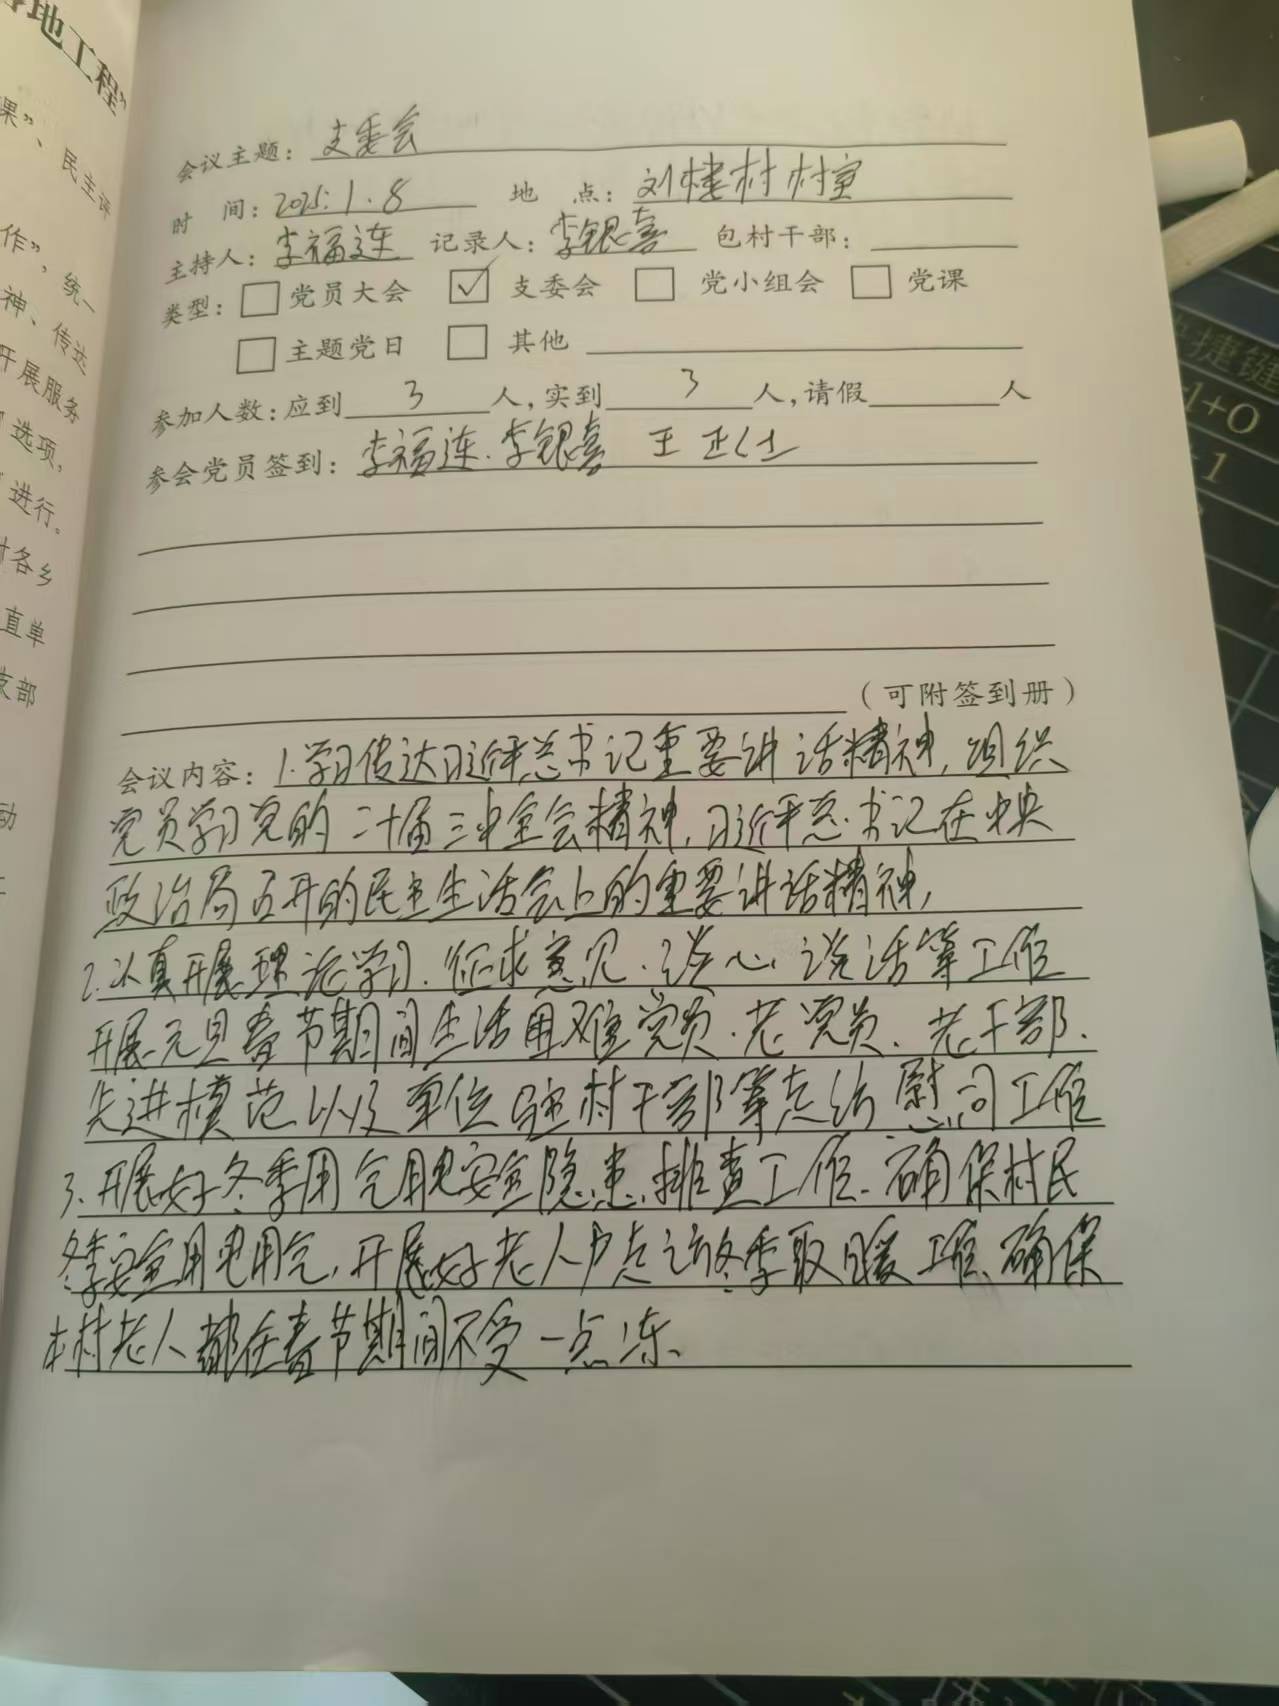 地工程”
课”、民主评
作”，统一
神、传达
开展服务
选项，
进行。
村各乡
直单
支部
动
会议主题：支委会
时 间：2025.1.8 地 点：刘楼村村室
主持人：李福连 记录人：李银喜 包村干部：
类型：□党员大会 ☑支委会 □党小组会 □党课
□主题党日 □其他
参加人数：应到3人，实到3人，请假 人
参会党员签到：李福连.李银喜 王正仕
（可附签到册）
会议内容：1.学习传达习近平总书记重要讲话精神，组织
党员学习党的二十届三中全会精神，习近平总书记在中央
政治局召开的民主生活会上的重要讲话精神，
2.认真开展理论学习.征求意见.谈心谈话等工作
开展元旦春节期间生活困难党员.老党员、老干部.
先进模范以及单位驻村干部等走访慰问工作
3.开展好冬季用气用电安全隐患排查工作、确保村民
冬季安全用电用气，开展好老人户走访冬季取暖工作、确保
本村老人都在春节期间不受一点冻、
捷键
1+O
1